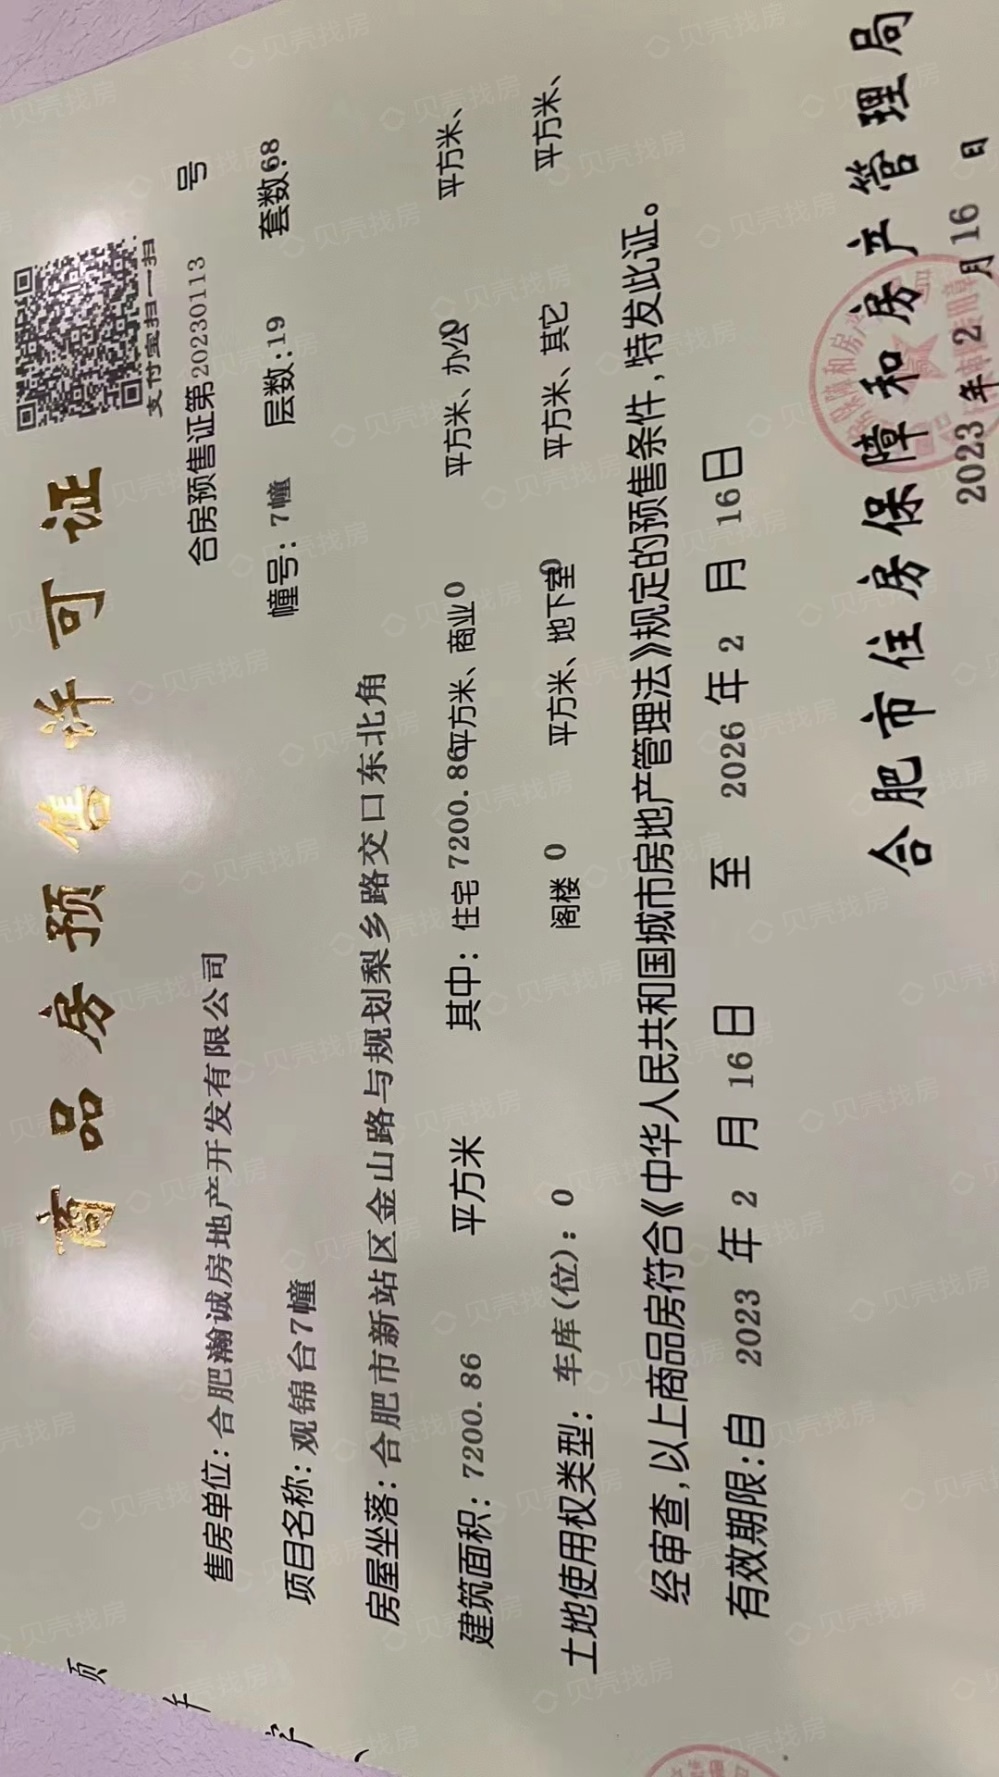 商品房预售许可证
支付宝扫一扫
合房预售证第20230113 号
售房单位:合肥瀚诚房地产开发有限公司
项目名称:观锦台7幢 幢号:7幢 层数:19 套数:68
房屋坐落:合肥市新站区金山路与规划梨乡路交口东北角
建筑面积:7200.86 平方米 其中:住宅7200.86平方米、商业0 平方米、办公0 平方米、
阁楼 0 平方米、地下室0 平方米、其它 平方米、
土地使用权类型: 车库(位):0
经审查,以上商品房符合《中华人民共和国城市房地产管理法》规定的预售条件,特发此证。
有效期限:自 2023 年 2 月 16日 至 2026 年 2 月 16日
合肥市住房保障和房产管理局
2023 年 2 月 16 日
贝壳找房